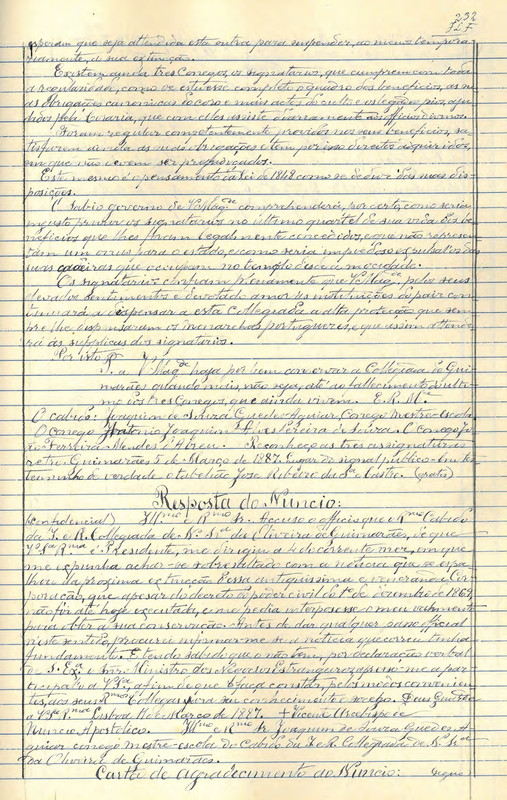 232
esperam que seja attendida esta outra para suspender, ao menos tempora-
riamente, a sua extincção.
Existem ainda tres Conegos, os signatarios, que cumprem com toda
a regularidade, como se estivesse completo o quadro dos beneficios, as su-
as obrigações canonicas do coro e mais actos do culto e legados pios, aju-
dados pela Coraria, que com elles assiste diariamente aos officios divinos.
Foram regular e competentemente providos nos seus beneficios, sa-
tisfizeram ainda as mais obrigações e tem por isso direitos adquiridos,
em que não devem ser prejudicados.
Este mesmo é o pensamento da Lei de 1848 como se deduz das suas dis-
posições.
O sabio governo de V. Mag.de comprehenderá, por certo, como seria
injusto privar os signatarios no ultimo quartel de sua vida dos be-
neficios que lhes foram legalmente concedidos, e que não represen-
tam um onus para o estado, e como seria impiedoso expulsal-os das
suas cadeiras que occupam no templo desde a mocidade.
Os signatarios confiam plenamente que V. Mag.de pelos seus
elevados sentimentos e devotado amor ás instituições do paiz con-
tinuará a dispensar a esta Collegiada a alta protecção que sem-
pre lhe dispensaram os monarchas portuguezes, e que assim attende-
rá ás supplicas dos signatarios.
Por isto P.
a V. Mag.de haja por bem conservar a Collegiada de Gui-
marães quando mais não seja, até ao fallecimento do ulti-
mo dos tres Conegos, que ainda vivem. E. R. M.ce
O cabido: Joaquim de Souza Guedes Aguiar, Conego Mestre-Escola.
O Conego Antonio Joaquim Pereira de Souza. O Conego Jo-
Ferreira Mendes d'Abreu. Reconheço as tres assignaturas
retro. Guimarães 5 de Março de 1887. Lugar do signal publico. Em tes-
temunho de verdade o tabelião José Ribeiro da S.a e Castro. (gratis)
Resposta do Nuncio:
(Confidencial) Ill.mo e R.mo Sr. Accuso o officio que o R.mo Cabido
da I. e R. Collegiada de N. S.ra da Oliveira de Guimarães, de que
V. S.a R.ma é Presidente, me dirigiu a 4 do corrente mez, em que
me expunha achar-se sobresaltado com a noticia que se espa-
lhou da proxima extincção dessa antiquissima e veneranda Cor-
poração, que apesar do decreto do poder civil do 1.o de dezembro de 1869
não foi até hoje executado, e me pedia interpozesse o meu valimento
para obter a sua conservação. Antes de dar qualquer passo official
n'este sentido, procurei informar-me se a noticia que correu tinha
fundamento. E tendo sabido que o não tem, por declaração verbal
de S. Ex.a o Snr. Ministro dos Negocios Estrangeiros, apresso-me a par-
ticipal-o a V. S.a, afim de que o faça constar, pelos modos convenien-
tes, aos seus R.mos Collegas para seu conhecimento e socego. Deus Guarde
a V. S.a R. Lisboa 11 de Março de 1887. + Vicente Arcebispo de
Nuncio Apostolico. Ill.mo e R.mo Sr. Joaquim de Souza Guedes A-
guiar conego mestre-escola do Cabido da I. e R. Collegiada de N. S.ra
da Oliveira de Guimarães.
Carta de agradecimento ao Nuncio: